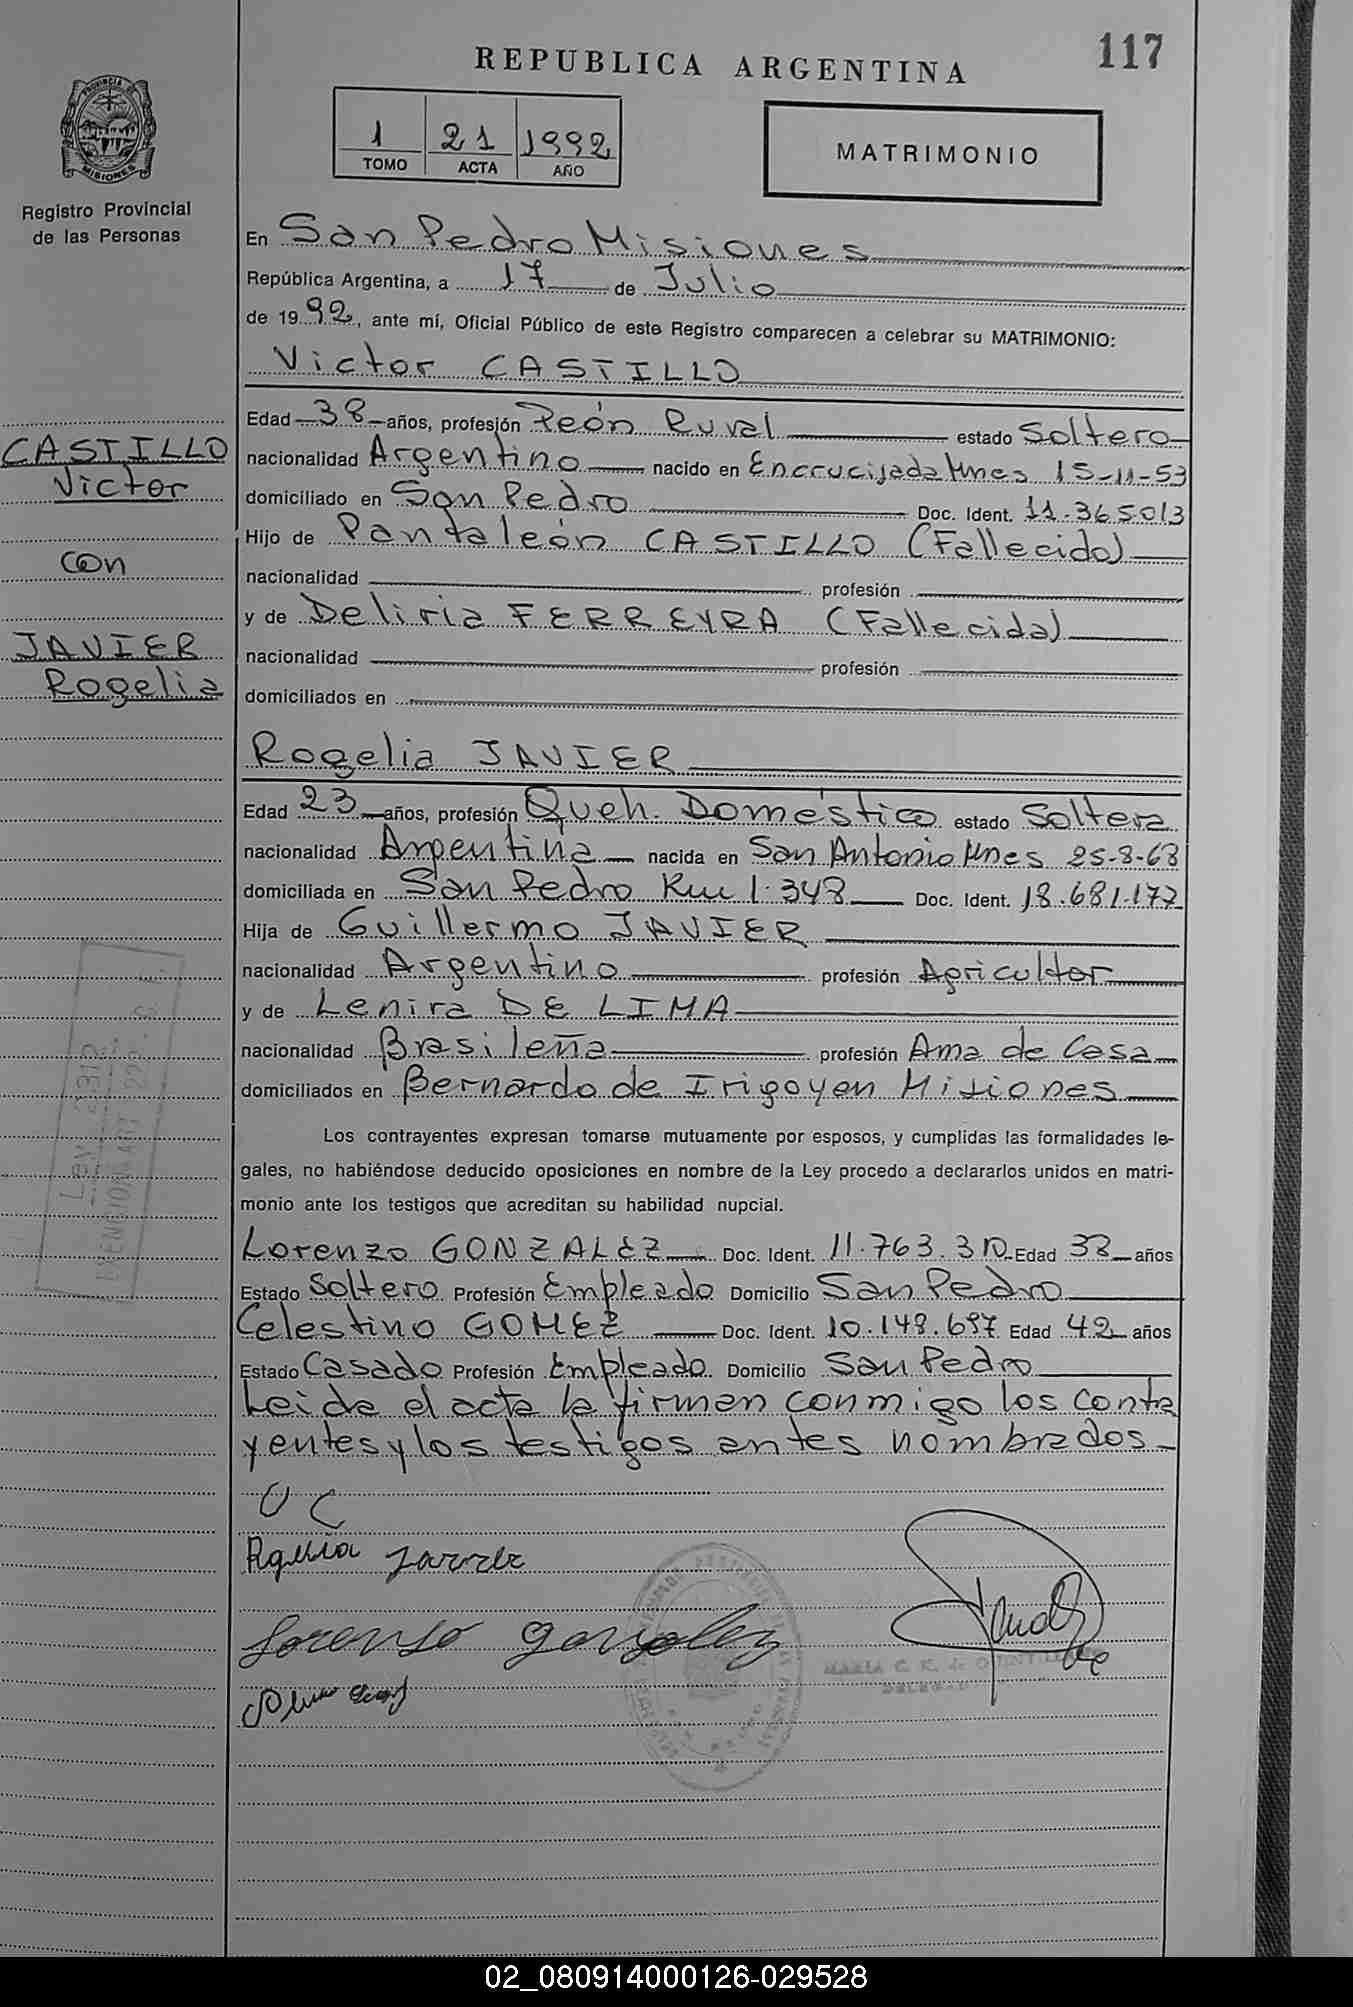 117
REPUBLICA ARGENTINA
PROVINCIA DE MISIONES
1 21 1992
TOMO ACTA AÑO
MATRIMONIO
Registro Provincial
de las Personas
En San Pedro Misiones
República Argentina, a 17 de Julio
de 1992, ante mí, Oficial Público de este Registro comparecen a celebrar su MATRIMONIO:
Victor CASTILLO
Edad 38 años, profesión Peón Rural estado Soltero
CASTILLO
Victor
con
JAVIER
Rogelia
nacionalidad Argentino nacido en Encrucijada Mnes 15-11-53
domiciliado en San Pedro Doc. Ident. 11.365013
Hijo de Pantaleón CASTILLO (Fallecido)
nacionalidad profesión
y de Deliria FERREYRA (Fallecida)
nacionalidad profesión
domiciliados en
Rogelia JAVIER
Edad 23 años, profesión Queh. Doméstico estado Soltera
nacionalidad Argentina nacida en San Antonio Mnes 25-8-68
domiciliada en San Pedro Km 1.348 Doc. Ident. 18.681.177
Hija de Guillermo JAVIER
nacionalidad Argentino profesión Agricultor
y de Lenira DE LIMA
nacionalidad Brasileña profesión Ama de Casa
domiciliados en Bernardo de Irigoyen Misiones
Los contrayentes expresan tomarse mutuamente por esposos, y cumplidas las formalidades le-
gales, no habiéndose deducido oposiciones en nombre de la Ley procedo a declararlos unidos en matri-
monio ante los testigos que acreditan su habilidad nupcial.
Lorenzo GONZALEZ Doc. Ident. 11.763.310 Edad 38 años
Estado Soltero Profesión Empleado Domicilio San Pedro
Celestino GOMEZ Doc. Ident. 10.148.697 Edad 42 años
Estado Casado Profesión Empleado Domicilio San Pedro
Leida el acta la firman conmigo los contra
yentes y los testigos antes nombrados
Ley 2312
ART 222
V C
Rogelia Javier
Lorenso Gonzalez
MARIA C. K. de
02_080914000126-029528